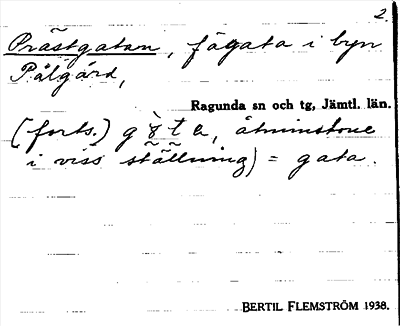 2.
Prästgatan, fägata i byn
Pålgård,
Ragunda sn och tg, Jämtl. län.
(forts.) g t a, åtminstone
i viss ställning) = gata.
BERTIL FLEMSTRÖM 1938.